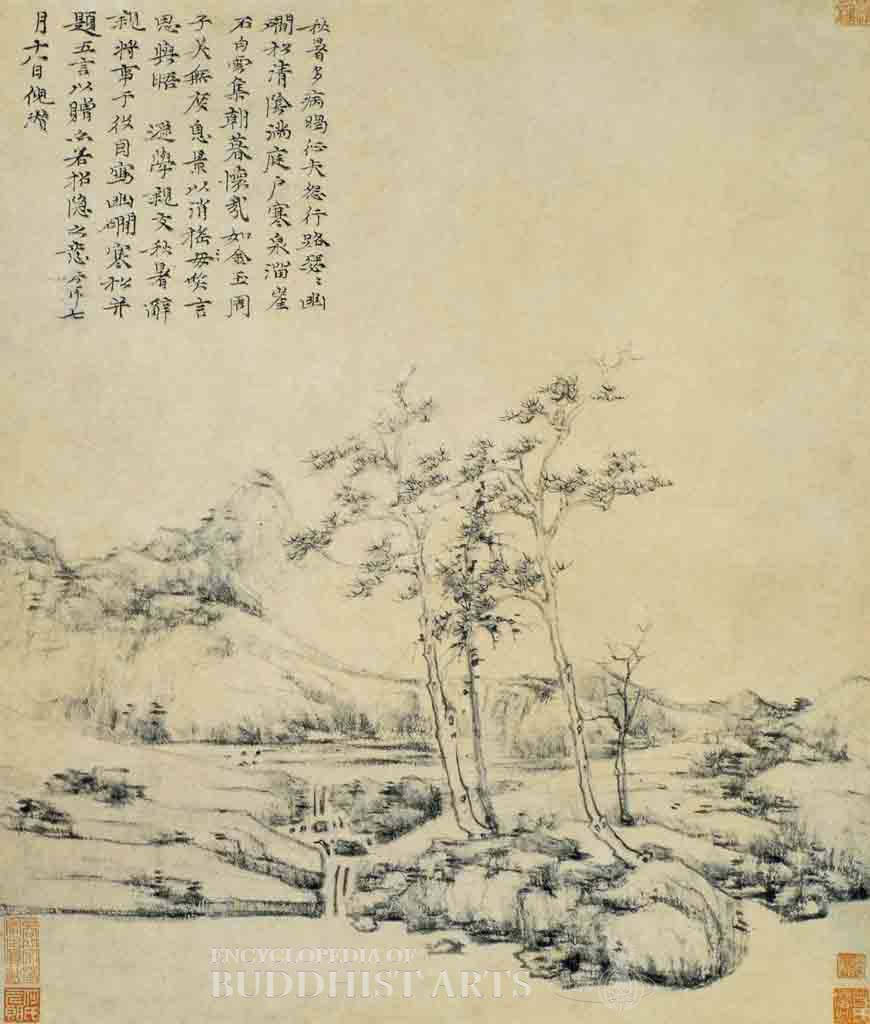 秋暑多病暍征夫怨行路瑟〻幽
磵松清陰滿庭戶寒泉溜崖
石白雲集朝暮懷哉如金玉周
子美無度息景以消搖毋笑言
思與晤 遜學親友秋暑辭
親將事于役因寫幽磵寒松并
題五言以贈亦若招隱之意云爾七
月十八日倪瓚
ENCYCLOPEDIA OF
BUDDHIST ARTS